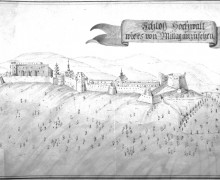 Schloß Hochwall
wie es von Mittag anzusehen